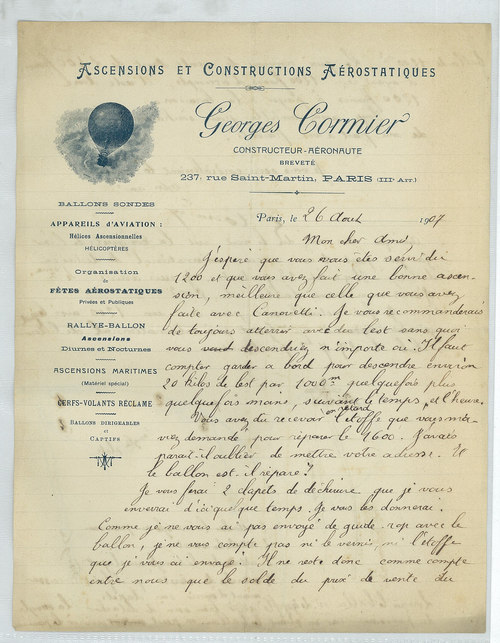 Ascensions et Constructions Aérostatiques
Georges Cormier
CONSTRUCTEUR-AÉRONAUTE
BREVETÉ
237, rue Saint-Martin, PARIS (IIIe Arr.)
BALLONS SONDES
APPAREILS D'AVIATION :
Hélices Ascensionnelles
HÉLICOPTÈRES
Organisation
de
FÊTES AÉROSTATIQUES
Privées et Publiques
RALLYE-BALLON
Ascensions
Diurnes et Nocturnes
ASCENSIONS MARITIMES
(Matériel spécial)
CERFS-VOLANTS RÉCLAME
BALLONS DIRIGEABLES
et
CAPTIFS
Paris, le 26 Aout 1907
Mon cher Ami
J'espère que vous vous êtes servi du
1200 et que vous avez fait une bonne ascen-
sion, meilleure que celle que vous avez
faite avec Canovetti. Je vous recommanderais
de toujours atterrir avec du lest sans quoi
vous descendriez n'importe où. Il faut
compter garder a bord pour descendre environ
20 kilos de lest par 1000m quelquefois plus
quelquefois moins, suivant le temps et l'heure.
Vous avez du recevoir en retard l'étoffe que vous m'a-
viez demandé pour réparer le 1600. J'avais
parait-il oublier de mettre votre adresse. Et
le ballon est-il réparé?
Je vous ferai 2 clapets de déchirure que je vous
enverrai d'ici quelque temps. Je vous les donnerai.
Comme je ne vous ai pas envoyé de guide-rop avec le
ballon, je ne vous compte pas ni le vernis, ni l'étoffe
que je vous ai envoyé. Il ne reste donc comme compte
entre nous que le solde du prix de vente du